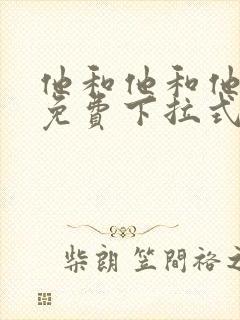 他和他和他
免費下拉式
柴朗 笠間裕之